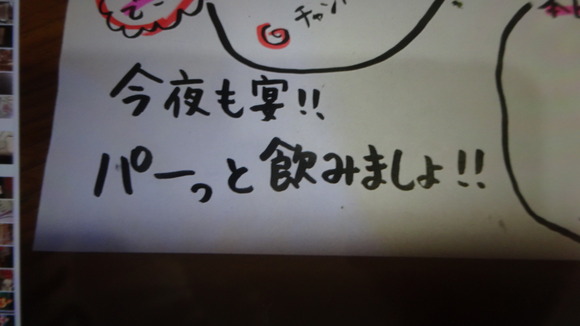 今夜も宴!!
パーっと飲みましょ!!